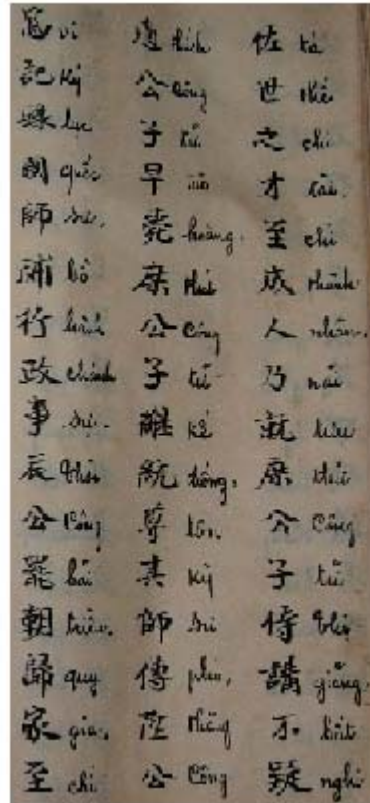 佐 tá 世 thế 之 chi 才 tài. 至 chí 成 thành 人 nhân. 乃 nãi 就 tựu 庶 thứ 公 Công 子 tử 侍 thị 講 giảng. 不 bất 疑 nghi
公 Công 子 tử 早 tảo 薨 hoăng. 庶 thứ 公 Công 子 tử 繼 kế 統 thống. 尊 tôn. 其 kỳ 師 sư 傅 phó. 陞 thăng 公 Công
為 vi 記 ký 錄 lục 國 quốc 師 sư. 補 bổ 行 hành 政 chánh 事 sự. 辰 thời 公 Công 罷 bãi 朝 triều. 歸 quy 家 gia. 至 chí